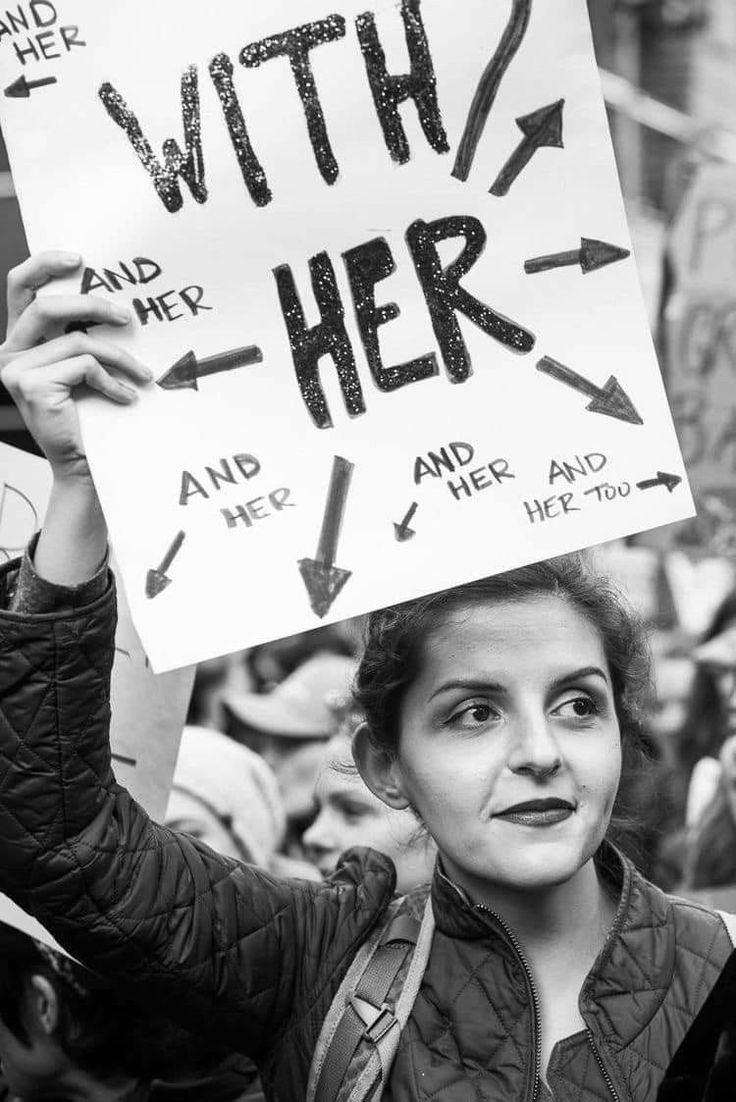 AND
HER
WITH
HER
AND
HER
AND
HER
AND
HER
AND
HER TOO